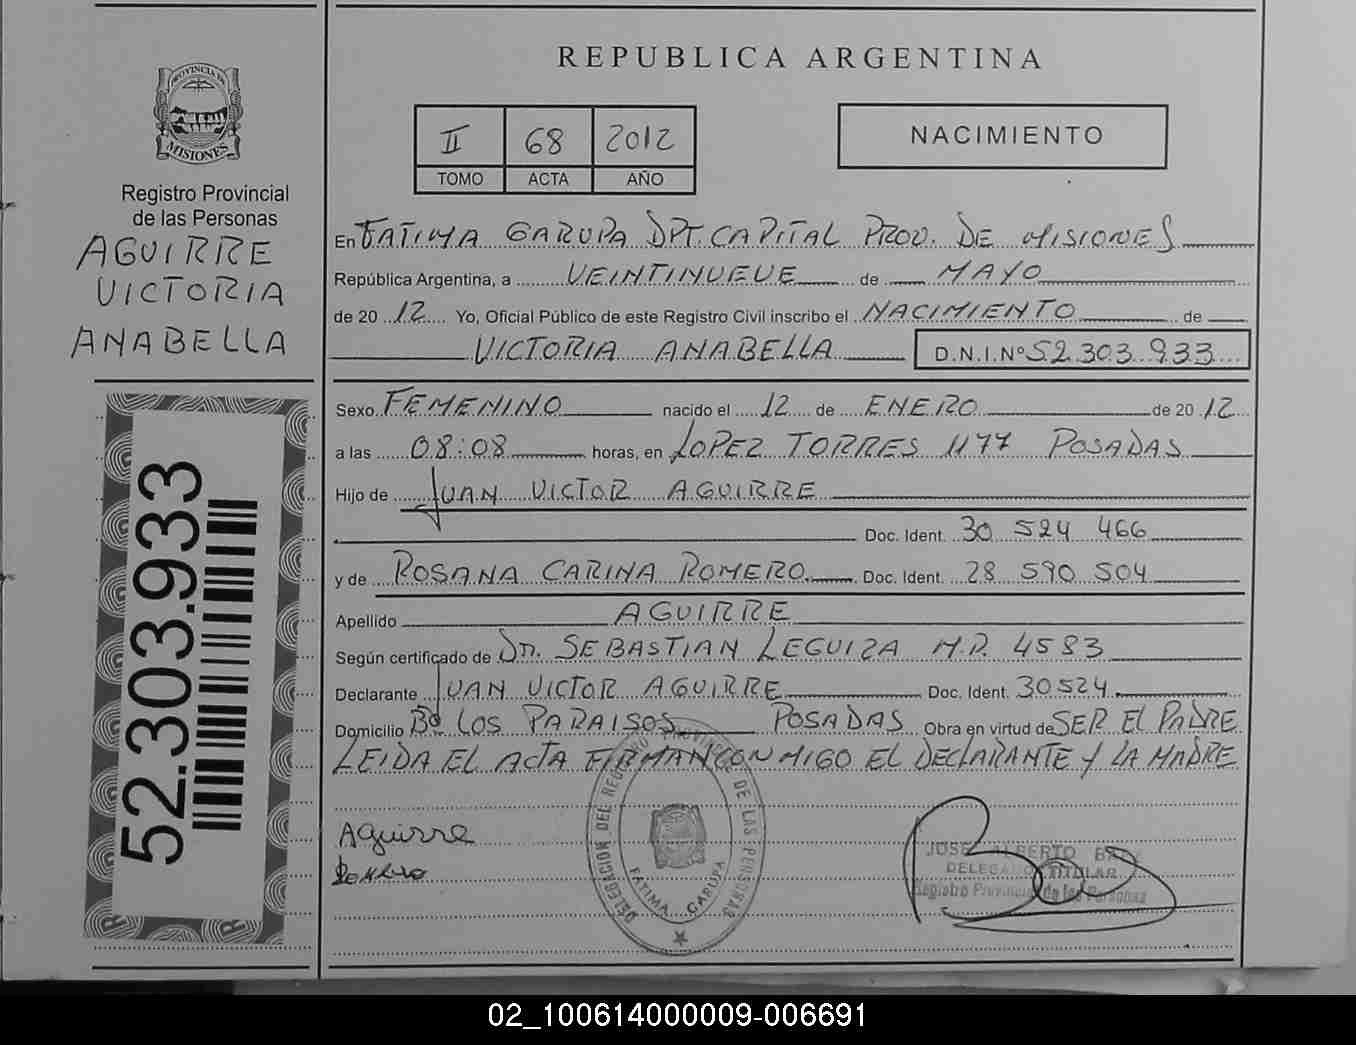 REPUBLICA ARGENTINA
PROVINCIA DE
MISIONES
Registro Provincial
de las Personas
AGUIRRE
VICTORIA
ANABELLA
52.303.933
II 68 2012
TOMO ACTA AÑO
NACIMIENTO
En FATIMA GARUPA DPT. CAPITAL PROV. DE MISIONES
República Argentina, a VEINTINUEVE de MAYO
de 20 12 Yo, Oficial Público de este Registro Civil inscribo el NACIMIENTO de
VICTORIA ANABELLA D.N.I.Nº 52.303.933
Sexo FEMENINO nacido el 12 de ENERO de 20 12
a las 08:08 horas, en LOPEZ TORRES 1177 POSADAS
Hijo de JUAN VICTOR AGUIRRE
Doc. Ident. 30 524 466
y de ROSANA CARINA ROMERO Doc. Ident. 28 590 504
Apellido AGUIRRE
Según certificado de Dr. SEBASTIAN LEGUIZA M.P. 4583
Declarante JUAN VICTOR AGUIRRE Doc. Ident. 30524
Domicilio Bº LOS PARAISOS POSADAS Obra en virtud de SER EL PADRE
LEIDA EL ACTA FIRMAN CONMIGO EL DECLARANTE Y LA MADRE
Aguirre
DELEGACION DEL REGISTRO PROVINCIAL DE LAS PERSONAS
FATIMA GARUPA
JOSE ALBERTO
DELEGADO TITULAR
Registro Provincial de las Personas
02_100614000009-006691